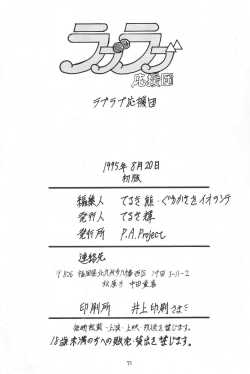 ラブラブ
応援団
ラブラブ応援団
1995年8月20日
初版
編集人 てるき熊・
発行人 てるき輝
発行所 P.A.Project
連絡先
〒806 福岡県北九州市八幡西区 3-11-2
印刷所 井上印刷さま
無断転載・上演・上映・放送を禁じます。
18歳未満の方への販売・貸出を禁じます。